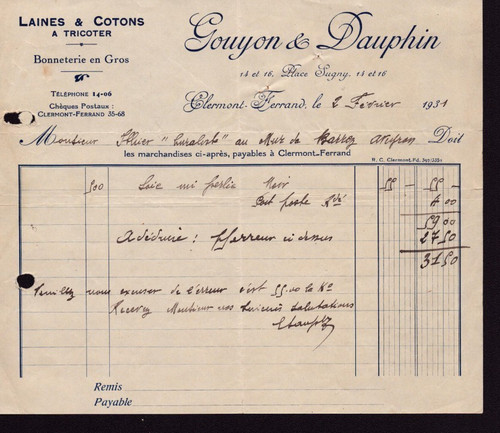 LAINES & COTONS
A TRICOTER
Bonneterie en Gros
TÉLÉPHONE 14-06
Chèques Postaux :
CLERMONT-FERRAND 35-68
Gouyon & Dauphin
14 et 16, Place Sugny, 14 et 16
Clermont-Ferrand, le 2 Février 1931
Monsieur "Buraliste" au Mur de Barrez Aveyron Doit
les marchandises ci-après, payables à Clermont-Ferrand
R. C. Clermont-Fd.
500 Soie mi perlée Noir 55 55
Port poste Rdé 4 00
59 00
A déduire : erreur ci dessus 27 50
31 50
Veuillez nous excuser de l'erreur c'est 55.00 le Ko
Recevez Monsieur nos sincères salutations
Remis
Payable